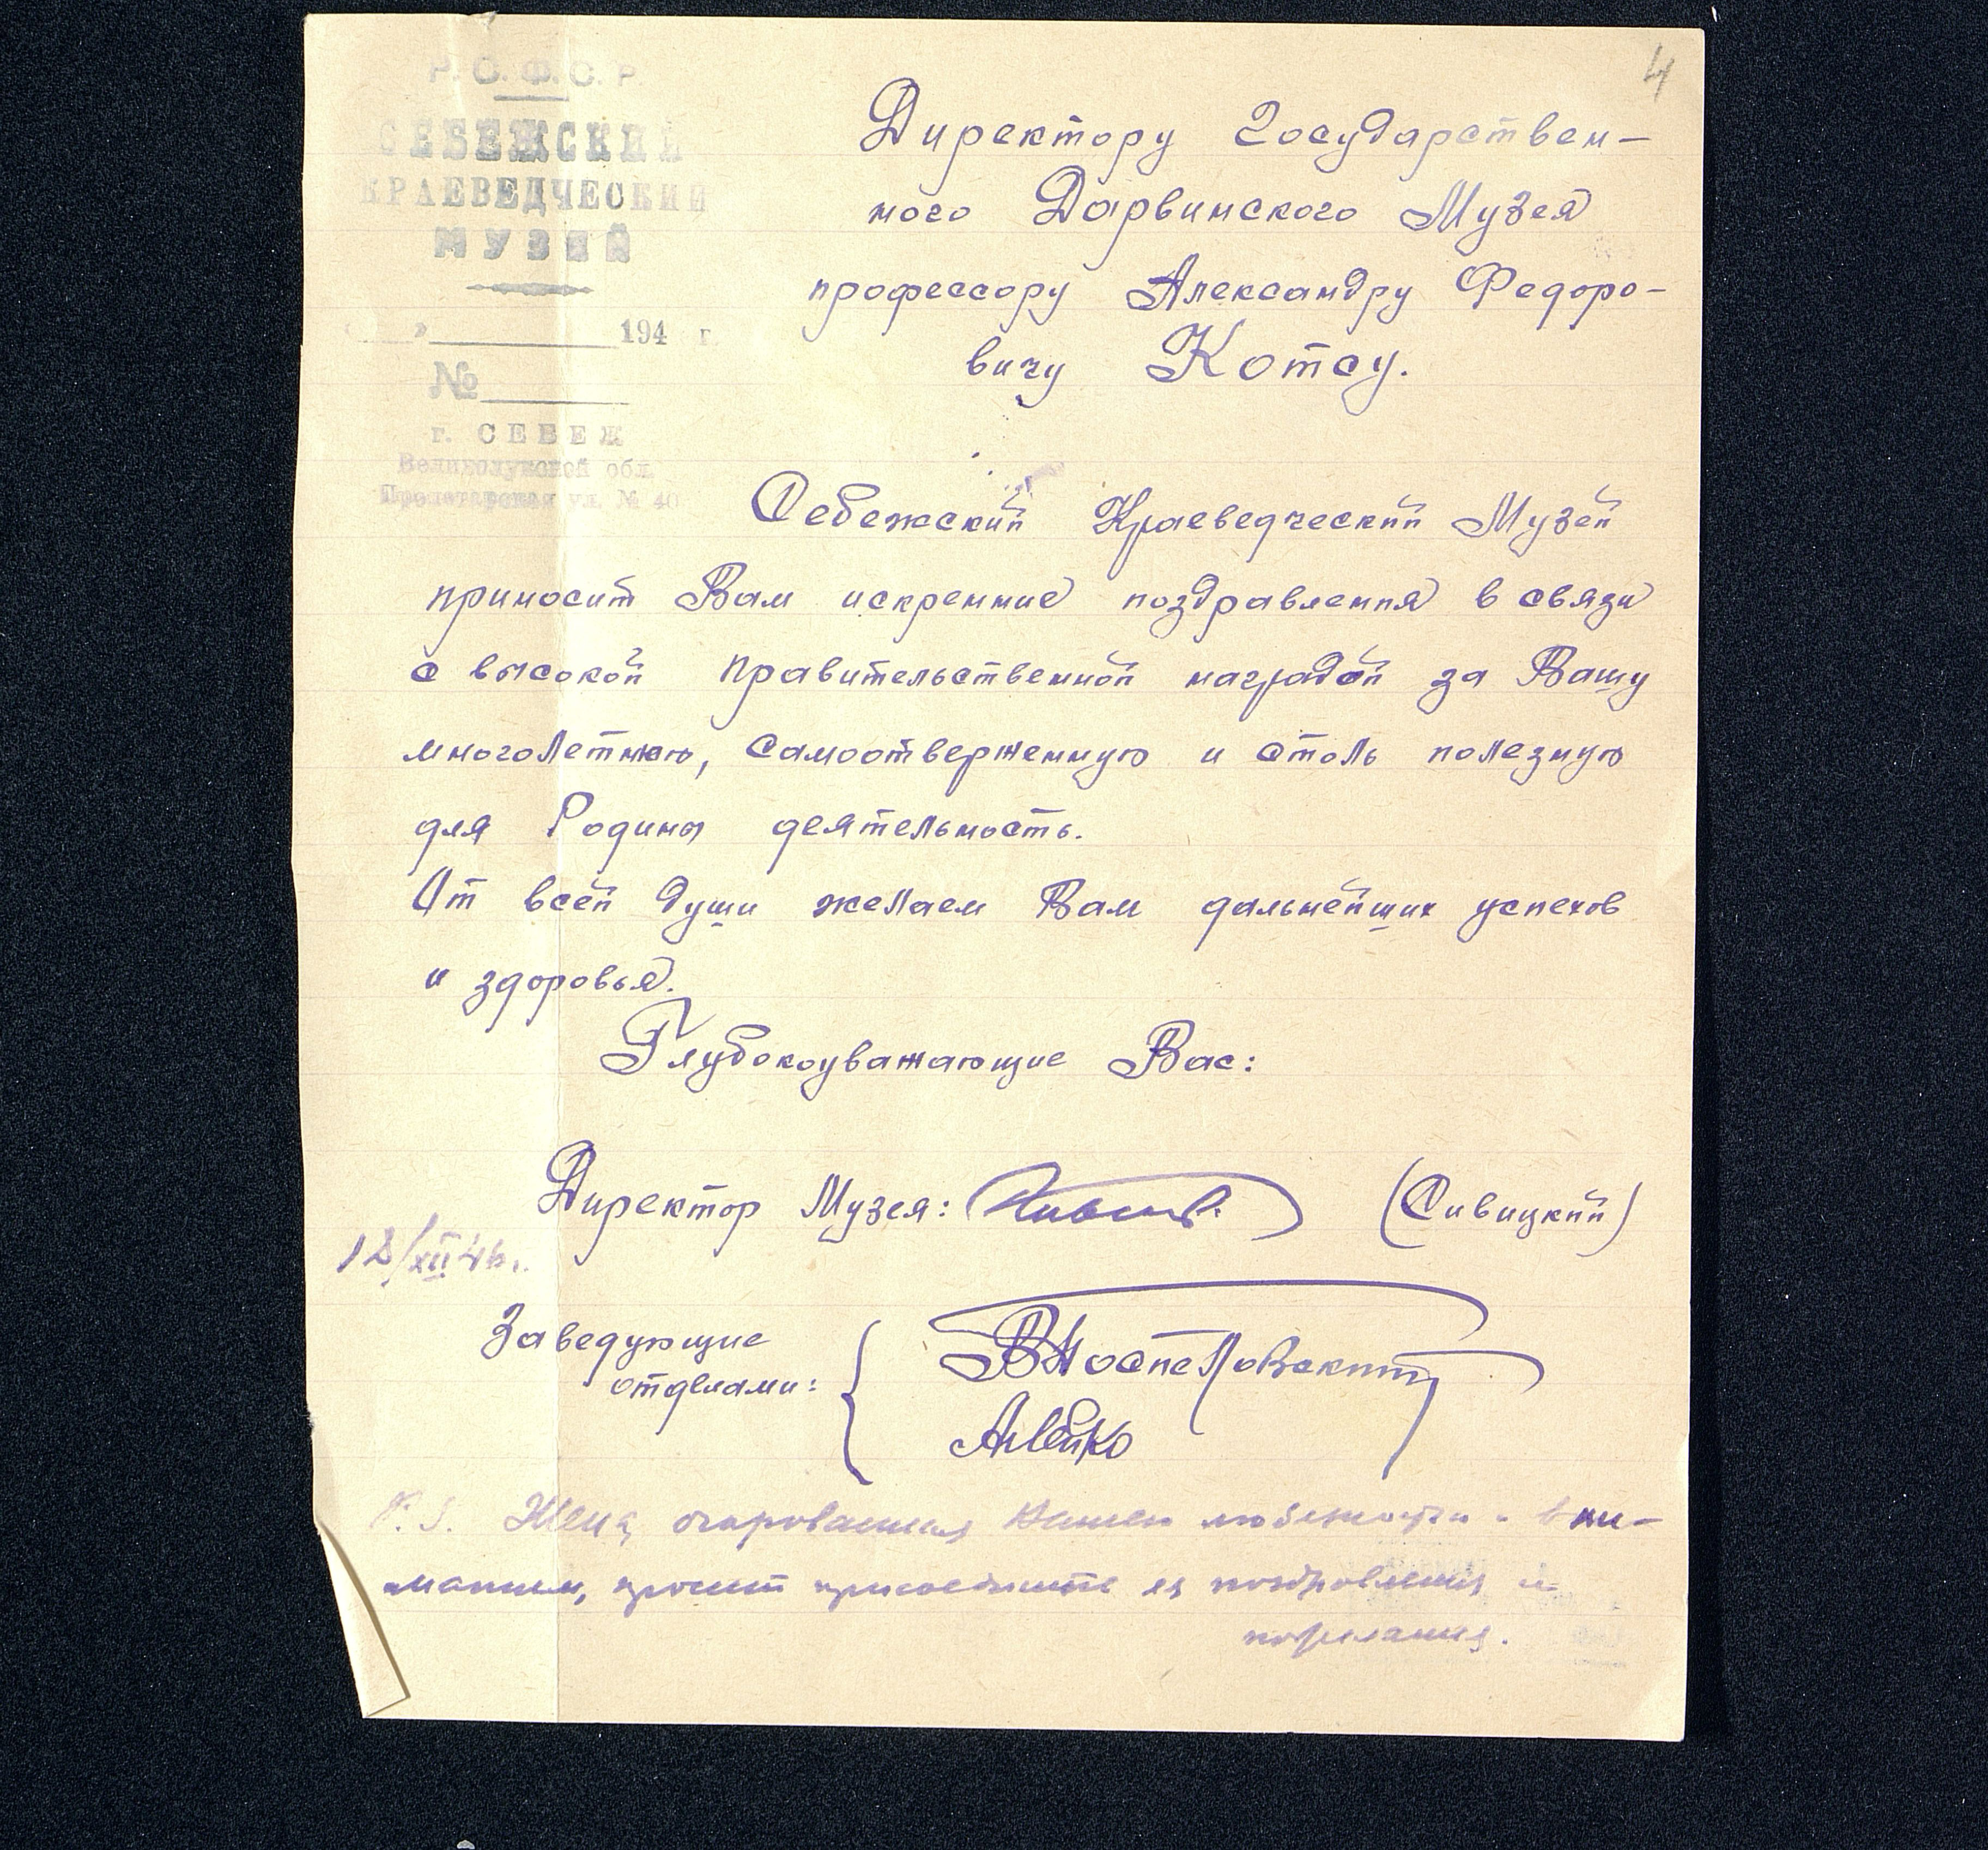 4
Р. С. Ф. С. Р.
СЕБЕЖСКИЙ
КРАЕВЕДЧЕСКИЙ
МУЗЕЙ
« » 194 г.
№
г. СЕБЕЖ
Великолукской обл.
Пролетарская ул. № 40
Директору Государствен-
ного Дарвинского Музея
профессору Александру Федоро-
вичу Котсу.
Себежский Краеведческий Музей
приносит Вам искренние поздравления в связи
с высокой правительственной наградой за Вашу
многолетнюю, самоотверженную и столь полезную
для Родины деятельность.
От всей души желаем Вам дальнейших успехов
и здоровья.
Глубокоуважающие Вас:
Директор Музея: (Сивицкий)
12/XII 46 г.
Заведующие
отделами:
P.S. Жена, очарованная Вашей любезностью и вни-
манием, просит присоединить ея поздравления и
пожелания.